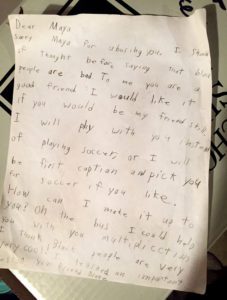 Dear Maya
Sorry Maya for abusing you. I should
of thought before saying that black
people are bad. To me you are a
good friend I would like it
if you would be my friend still.
I will play with you instead
of playing soccer, or I will
be first caption and pick you
for soccer if you like.
How can I make it up to
you? On the bus I could help
you with you multiplications
I think Black people are very
very cool. I learned an important